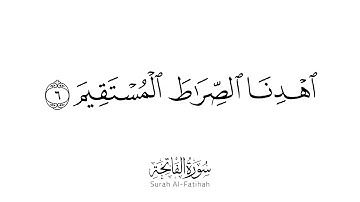 ٱهْدِنَا ٱلصِّرَٰطَ ٱلْمُسْتَقِيمَ ٦
سُورَةُ ٱلْفَاتِحَةِ
Surah Al-Fatihah